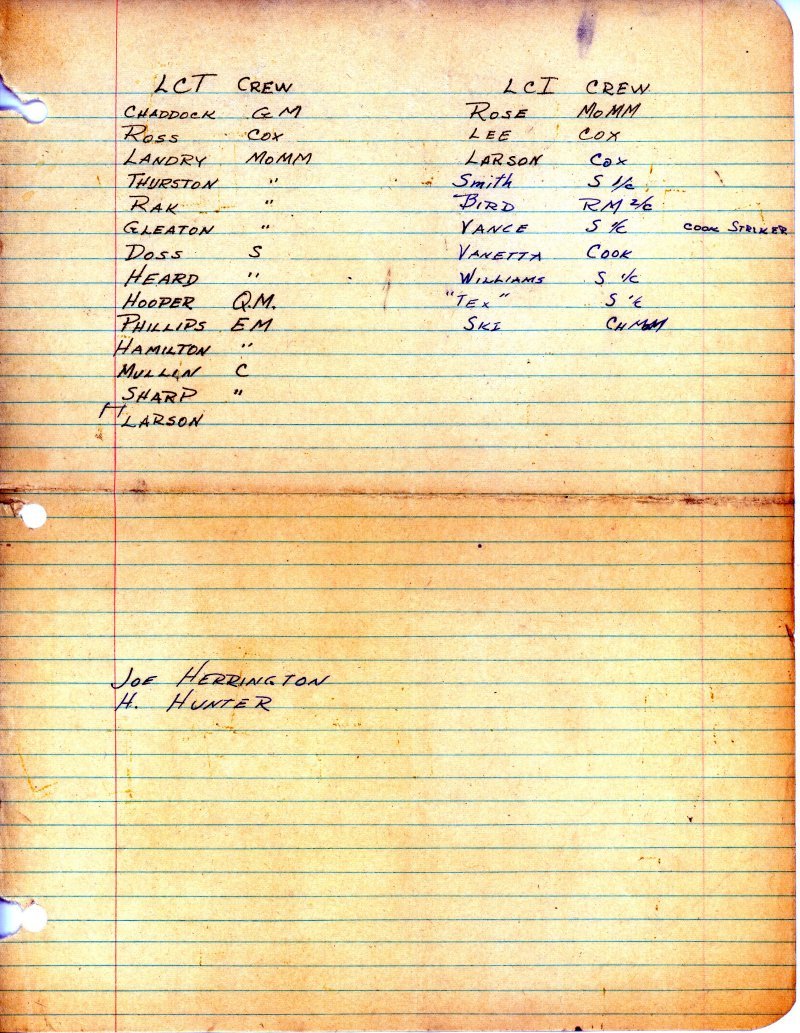 LCT CREW
CHADDOCK GM
ROSS COX
LANDRY MoMM
THURSTON "
RAK "
GLEATON "
DOSS S
HEARD "
HOOPER Q.M.
PHILLIPS EM
HAMILTON "
MULLIN C
SHARP "
LARSON
LCI CREW
ROSE MoMM
LEE COX
LARSON Cox
Smith S 1/c
BIRD RM 2/c
VANCE S 1/c COOK STRIKER
VANETTA COOK
WILLIAMS S 1/c
"TEX" S 1/c
SKI CH MoM
JOE HERRINGTON
H. HUNTER